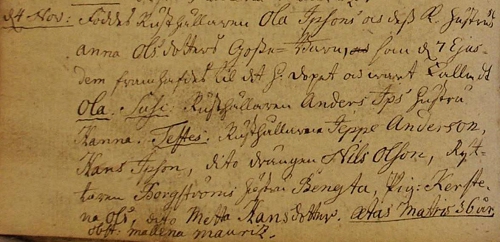 d 4 Nov: Föddes Rusthållaren Ola Ipsons och dess K. hustrus
anna Ols dotters Gosse-Barn, som d 7 Ejus-
dem framhafdes til det h: dopet och wart Kallad
Ola. Susc: Rusthållaren Anders Ips hustru
Hanna. Testes: Rusthållaren Jeppe Anderson,
Hans Ipson, dito drängen Nils Olson, Ryt-
taren Borgströms hustru Bengta, Pig: Kerste-
na Ols, dito Metta Hans dotter. Ætas Matris 36 år
obst: malena mauritz.